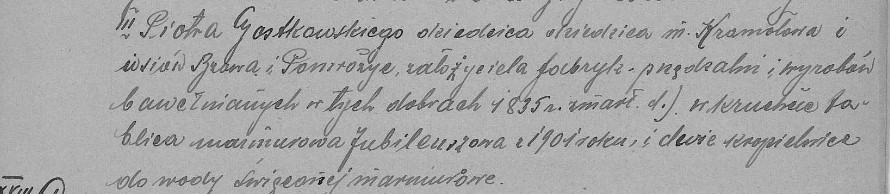 II Piotra Gostkowskiego dziedzica dziedzica m. Kromołowa i
wsiów Brawa, i Pomrożyc, założyciela fabryk. przędzalni i wyrobów
bawełnianych w tych dobrach 1835 r. zmarł. d.). w kruchcie ta-
blica marmurowa Jubileuszowa z 1901 roku, i dwie kropielnice
do wody święconej marmurowe.
XVIII